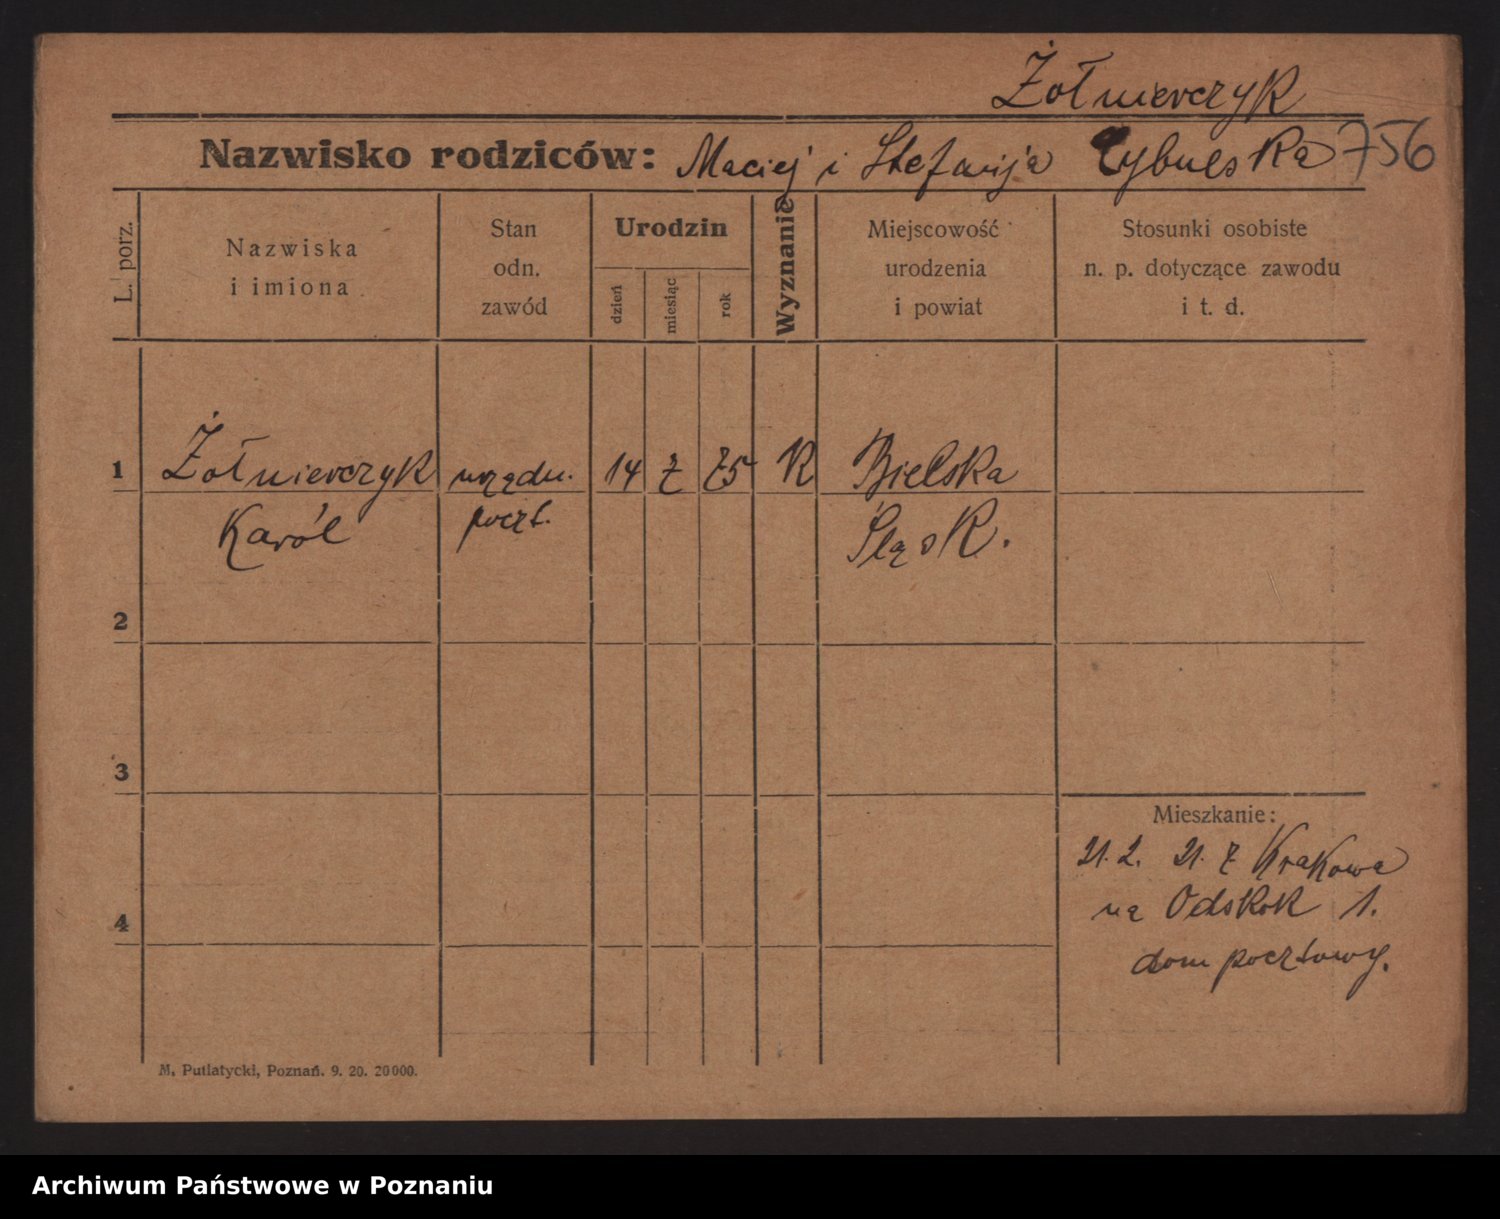 Żołnierczyk
Nazwisko rodziców: Maciej i Stefanija Cybulska 756
L. porz.
Nazwiska
i imiona
Stan
odn.
zawód
Urodzin
dzień
miesiąc
rok
Wyznanie
Miejscowość
urodzenia
i powiat
Stosunki osobiste
n. p. dotyczące zawodu
i t. d.
1 Żołnierczyk urzędn. 14 K Bielska
Karól poczt. Śląsk.
2
3
4
Mieszkanie:
21. 2. 21. z Krakowa
na Odskok 1.
dom pocztowy.
M. Putiatycki, Poznań. 9. 20. 20000.
Archiwum Państwowe w Poznaniu